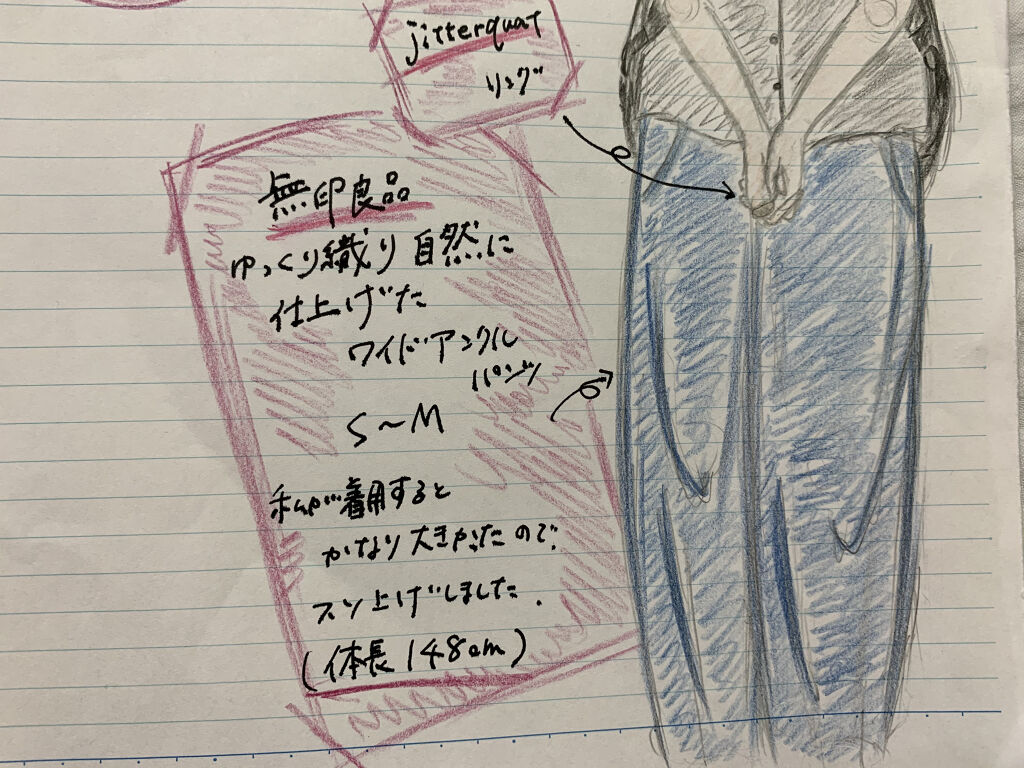 jitterquat
リング
無印良品
ゆっくり織り自然に
仕上げた
ワイドアンクル
パンツ
S～M
私が着用すると
かなり大きかったので
スソ上げしました.
(体長148cm)